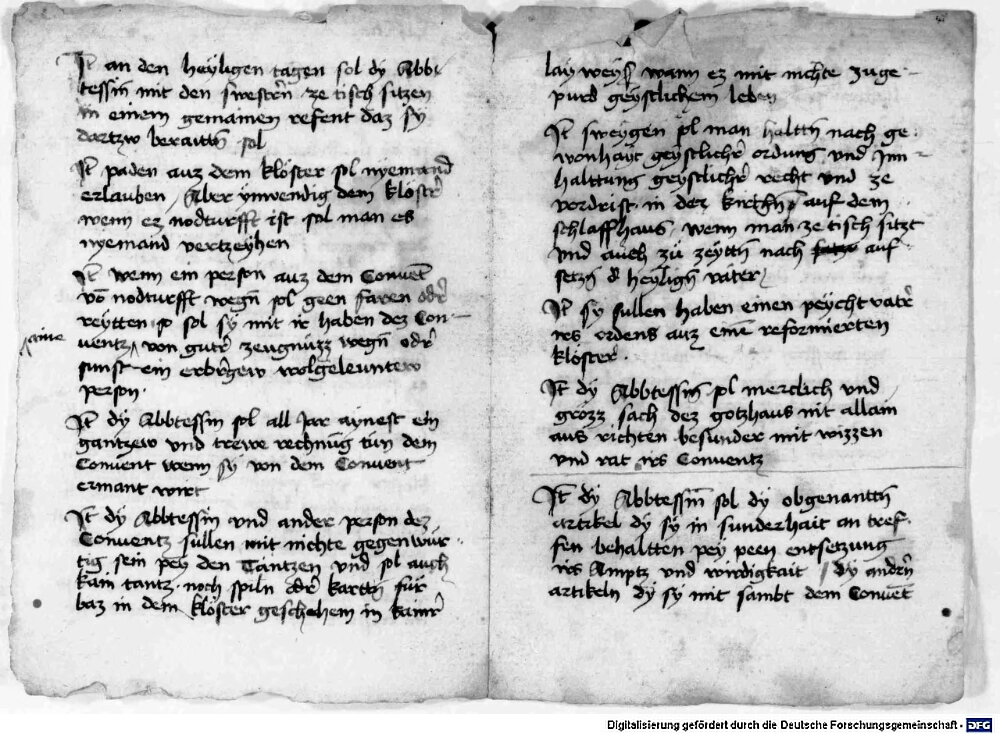 It an den heyligen tagen sol dy Abb
tessin mit den swestern ze tisch sitzen
in einem gemainen refent daz sy
dartzw beraittn sol
It paden auz dem kloster sol nyemand
erlauben / Aber ynwendig dem kloster
wenn ez nodturfft ist sol man es
nyemand vertzeyhen
It wenn ein person auz dem Convent
von nodturfft wegn sol geen faren oder
reytten so sol sy mit ir haben dez Con-
aine
ventz von guter zeugnuzz wegn oder
sunst ein erbergew wolgeleuntew
person
It dy Abbtessin sol all Jar aynest ein
gantzew und trewe rechnung tun dem
Convent wenn sy von dem Convent
ermant wirt
It dy Abbtessin und ander person dez
Conventz sullen mit nichte gegenwur-
tig sein pey den Täntzen und sol auch
kain tantz noch spiln oder kartten für
baz in dem kloster geschehen in kainer
lay weyß wann ez mit nichte zuge-
purd geystlichem leben
It sweygen sol man haltten nach ge
wonhayt geystlicher ordung und Inn-
halttung geystlicher recht und ze
vordrist in der kirchen auf dem
schlaffhaus / wenn man ze tisch sitzt
und auch zu zeyttn nach auf
setzn d heyligen väter /
It sy sullen haben einen peychtvater
irs ordens auz einem reformierten
kloster
It dy Abbtessin sol merclich und
grozz sach dez gotzhaus nit allain
aus richten besunder mit wizzen
und rat irs Conventz
It dy Abbtessin sol dy obgenantten
artikel dy sy in sunderhait an tref-
fen behaltten pey peen entsetzung
irs Amptz und wirdigkait / dy andern
artikeln dy sy mit sambt dem Convent
Digitalisierung gefördert durch die Deutsche Forschungsgemeinschaft - DFG